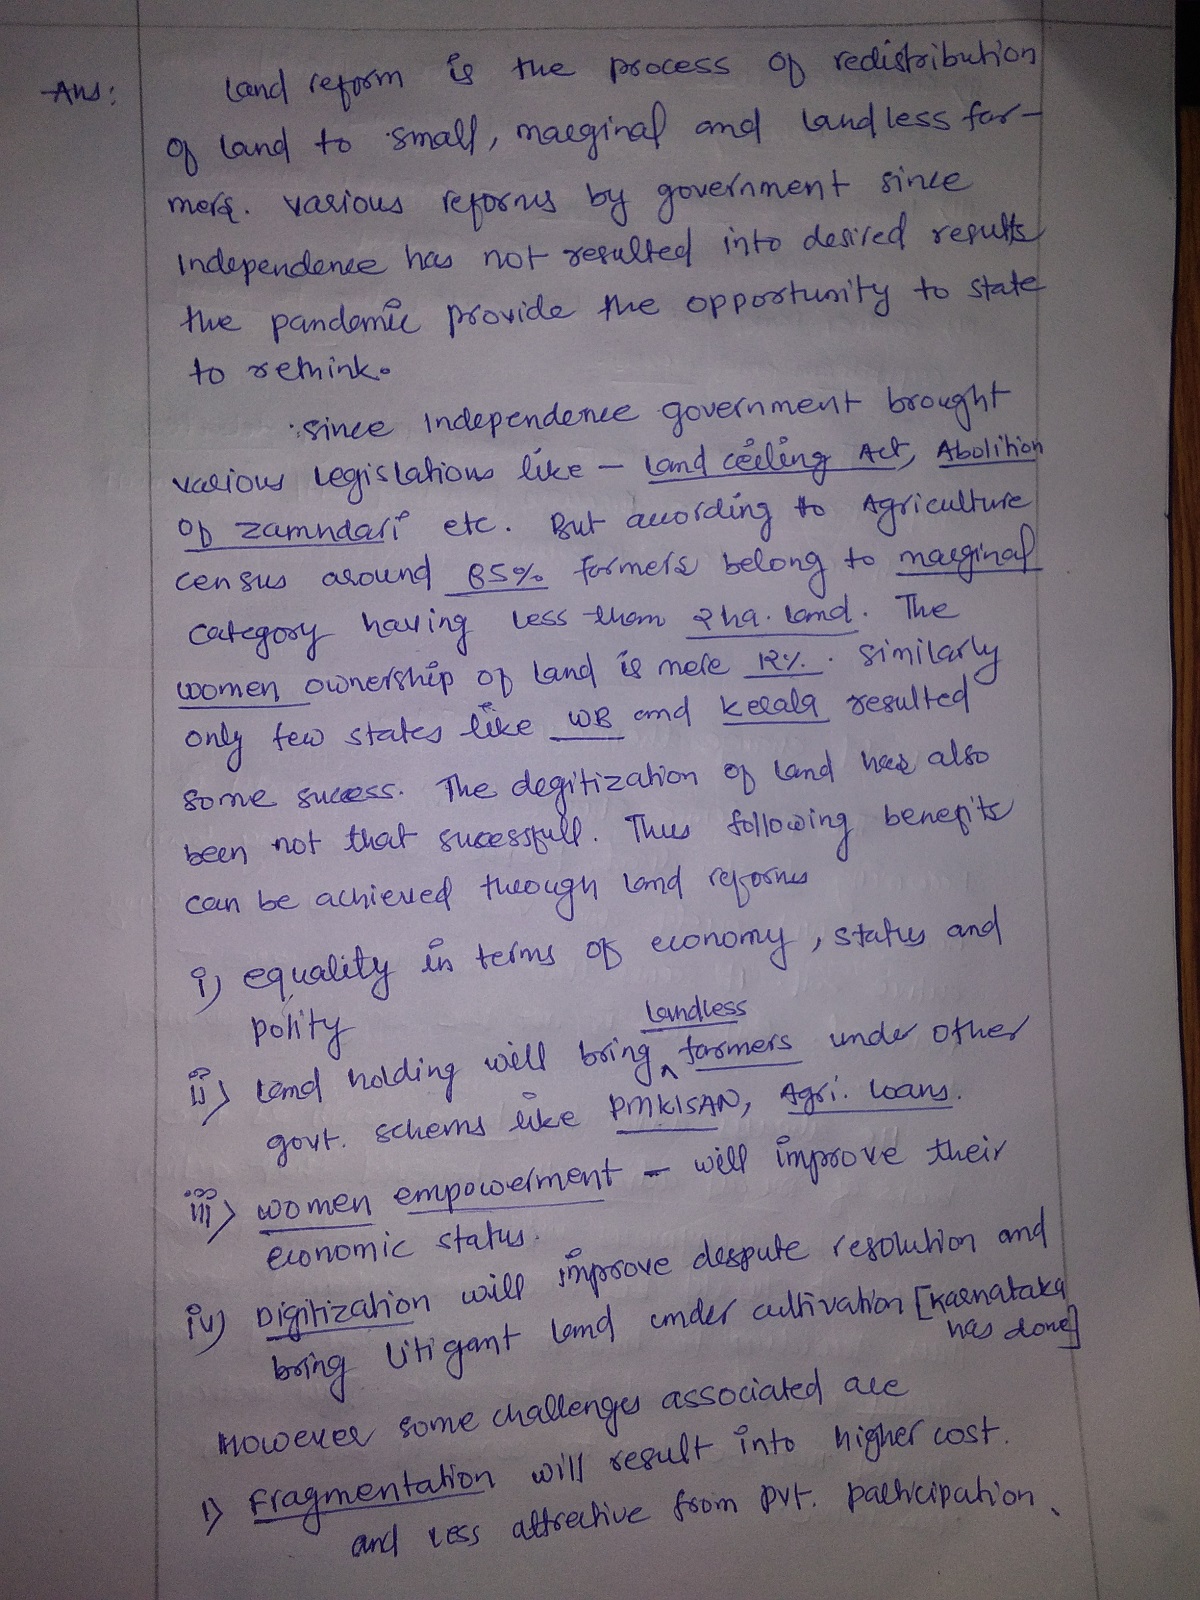 Ans:
Land reform is the process of redistribution
of land to small, marginal and landless far-
mers. Various reforms by government since
independence has not resulted into desired results
the pandemic provide the opportunity to state
to rethink.
Since independence government brought
various legislations like - Land ceiling Act, Abolition
of zamndari etc. But according to Agriculture
census around 85% farmers belong to marginal
category having less than 2 ha. land. The
women ownership of land is mere 12%. Similarly
only few states like WB and Kerala resulted
some sucess. The degitization of land has also
been not that sucessfull. Thus following benefits
can be achieved through land reforms
i) equality in terms of economy, status and
polity
ii) Land holding will bring landless farmers under other
govt. schems like PMKISAN, Agri. loans.
iii) women empowerment - will improve their
economic status.
iv) Digitization will improve despute resolution and
bring litigant land under cultivation [Karnataka
has done]
However some challenges associated are
i) Fragmentation will result into higher cost.
and less attractive from pvt. participation.